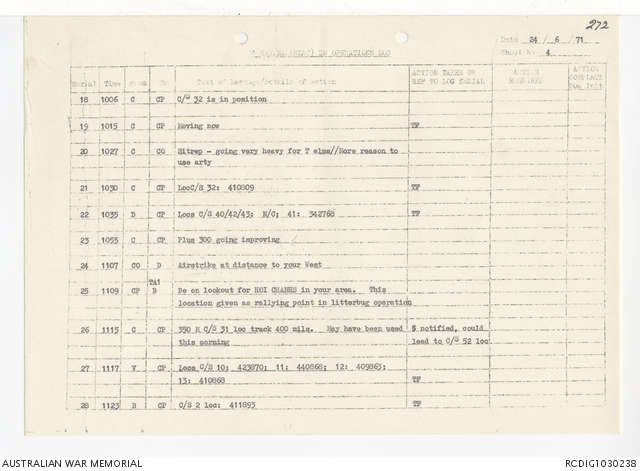 272
Date 24 / 6 / 71
Sheet No 4
IN OPERATIONS LOG
Serial Time FROM TO Text of Message/Details of action ACTION TAKEN OR REF TO LOG SERIAL ACTION REQUIRED ACTION CONTACT
18 1006 C CP C/S 32 is in position
19 1015 C CP Moving now TP
20 1027 C CO Sitrep - going very heavy for T elms//More reason to
use arty
21 1030 C CP LocC/S 32: 410809 TP
22 1035 D CP Locs C/S 40/42/43; N/C; 41: 342768 TP
23 1055 C CP Plus 300 going improving
24 1107 CO D Airstrike at distance to your West
TA1
25 1109 CP B Be on lookout for in your area. This
location given as rallying point in litterbug operation
26 1115 C CP 350 M C/S 31 loc track 400 mils. May have been used $ notified, could
this morning lead to C/S 52 loc
27 1117 V CP Locs C/S 10; 423870; 11: 440868; 12: 409863;
13: 410868 TP
28 1123 B CP C/S 2 loc: 411893 TP
AUSTRALIAN WAR MEMORIAL
RCDIG1030238